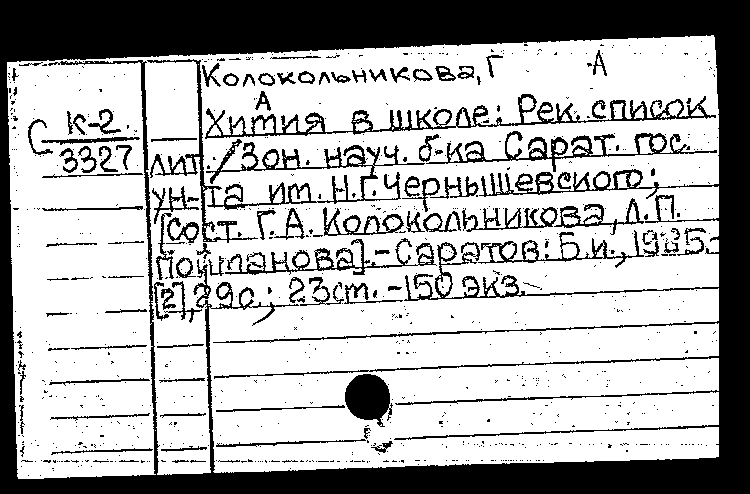 Колокольникова, Г А
С К-2
3327
Химия в школе: Рек. список
лит. / Зон. науч. б-ка Сарат. гос.
ун-та им. Н.Г. Чернышевского;
[Сост. Г.А. Колокольникова, Л.П.
]. - Саратов: Б.и., 1985. -
[2], 29 с.; 23 ст. - 150 экз.